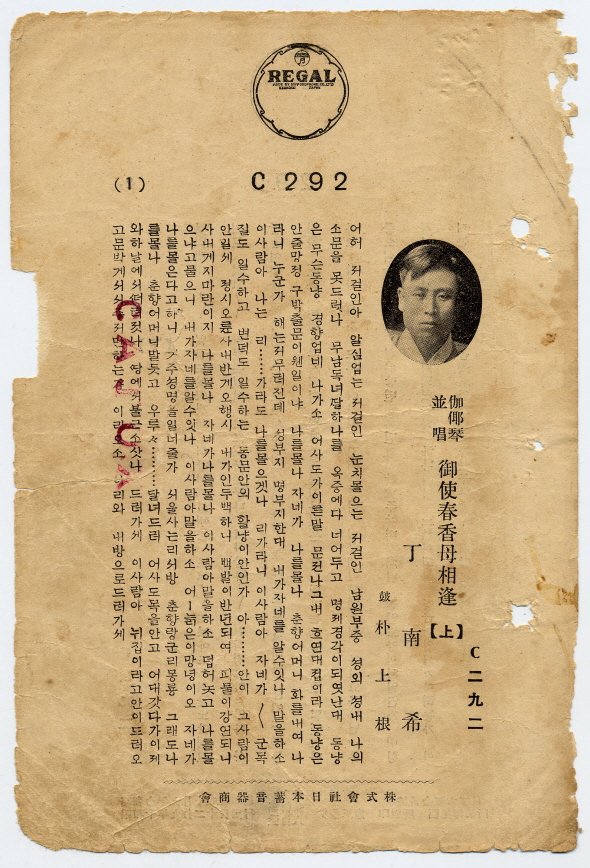 REGAL
MADE BY NIPPONOPHONE CO., LTD.
KAWASAKI JAPAN
C 292
(1)
C二九二
伽倻琴
並唱
御使春香母相逢【上】
丁南希
鼓 朴上根
어허 저걸인아 알심업는 저걸인 눈치몰으는 저걸인 남원부중 성외 성내 나의
소문을 못드럿나 무남독녀딸하나를 옥중에다 너어두고 명재경각이되엿난대 동냥
은 무슨동냥 경향업네 나가소 어사도가이른말 문전나그내 호연대접이라 동냥은
안줄망정 구박출문이웬일이냐 나를몰나 자네가 나를몰나 춘향어머니 화를내여 나
라니 누군가 해는저무러진데 성부지 명부지한대 내가자네를 알수잇나 말을하소
이사람아 나는 리……가라도 나를몰으겟나 리가라니 이사람아 자네가 〱 군목
질도 일수하고 변덕도 일수하는 동문안의 활냥이안인가 아………안이 그사람이
안일세 내가인두백하니 백발이반년되여
사내게지마란이지 나를몰나 자네가나를몰나 이사람아말을하소 덥허놋고 나를몰
으냐고몰으니 내가자네를알수잇나 이사람아말을하소 어ー늙은이망녕이오 자네가
나를몰은다고하니 거주성명을일너줄가 서울사는리서방 춘향랑군리몽룡 그래도나
를몰나 춘향어머니말듯고 우루々………달녀드러 어사도목을안고 어대갓다가이제
와 하날에서떠러젓나 땅에서불근소삿나 드러가세 이사람아 뉘집이라고안이드러오
고문박게서 이리오소 나리와 내방으로드러가세
會商器音蓄本日社會式株